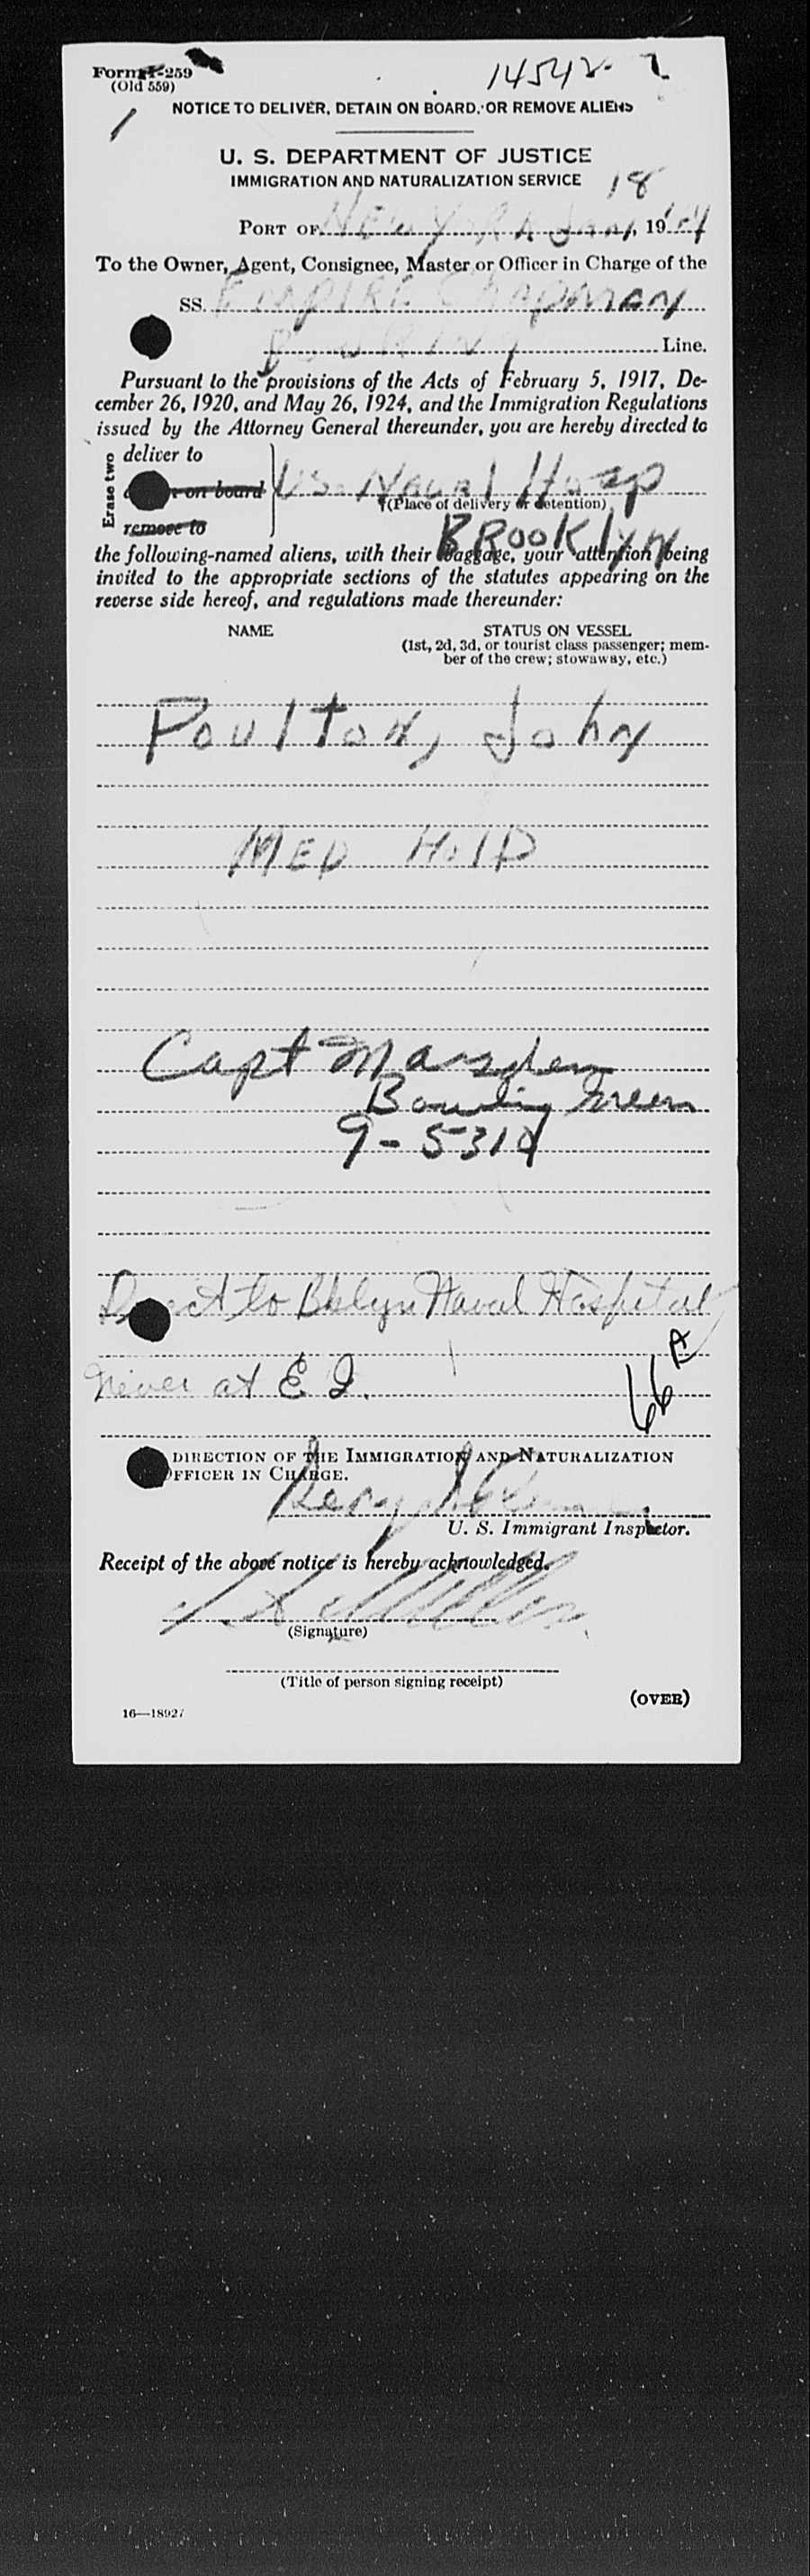 Form I-259
(Old 559)
14542
NOTICE TO DELIVER, DETAIN ON BOARD, OR REMOVE ALIENS
U. S. DEPARTMENT OF JUSTICE
IMMIGRATION AND NATURALIZATION SERVICE
18
PORT OF NEW YORK Jan, 1944
To the Owner, Agent, Consignee, Master or Officer in Charge of the
SS. EMPIRE Chapman
BowRiNg Line.
Pursuant to the provisions of the Acts of February 5, 1917, De-
cember 26, 1920, and May 26, 1924, and the Immigration Regulations
issued by the Attorney General thereunder, you are hereby directed to
Erase two
deliver to
on board
remove to
US. Naval Hosp
(Place of delivery or detention)
BROOKlyN
the following-named aliens, with their baggage, your attention being
invited to the appropriate sections of the statutes appearing on the
reverse side hereof, and regulations made thereunder:
NAME
STATUS ON VESSEL
(1st, 2d, 3d, or tourist class passenger; mem-
ber of the crew; stowaway, etc.)
Poulton, John
MED HolD
Capt Marsden
Bowling Green
9-5310
Direct to Bklyn Naval Hospital
Never at E I.
66 A
DIRECTION OF THE IMMIGRATION AND NATURALIZATION
OFFICER IN CHARGE.
U. S. Immigrant Inspector.
Receipt of the above notice is hereby acknowledged.
(Signature)
(Title of person signing receipt)
(OVER)
16—18927